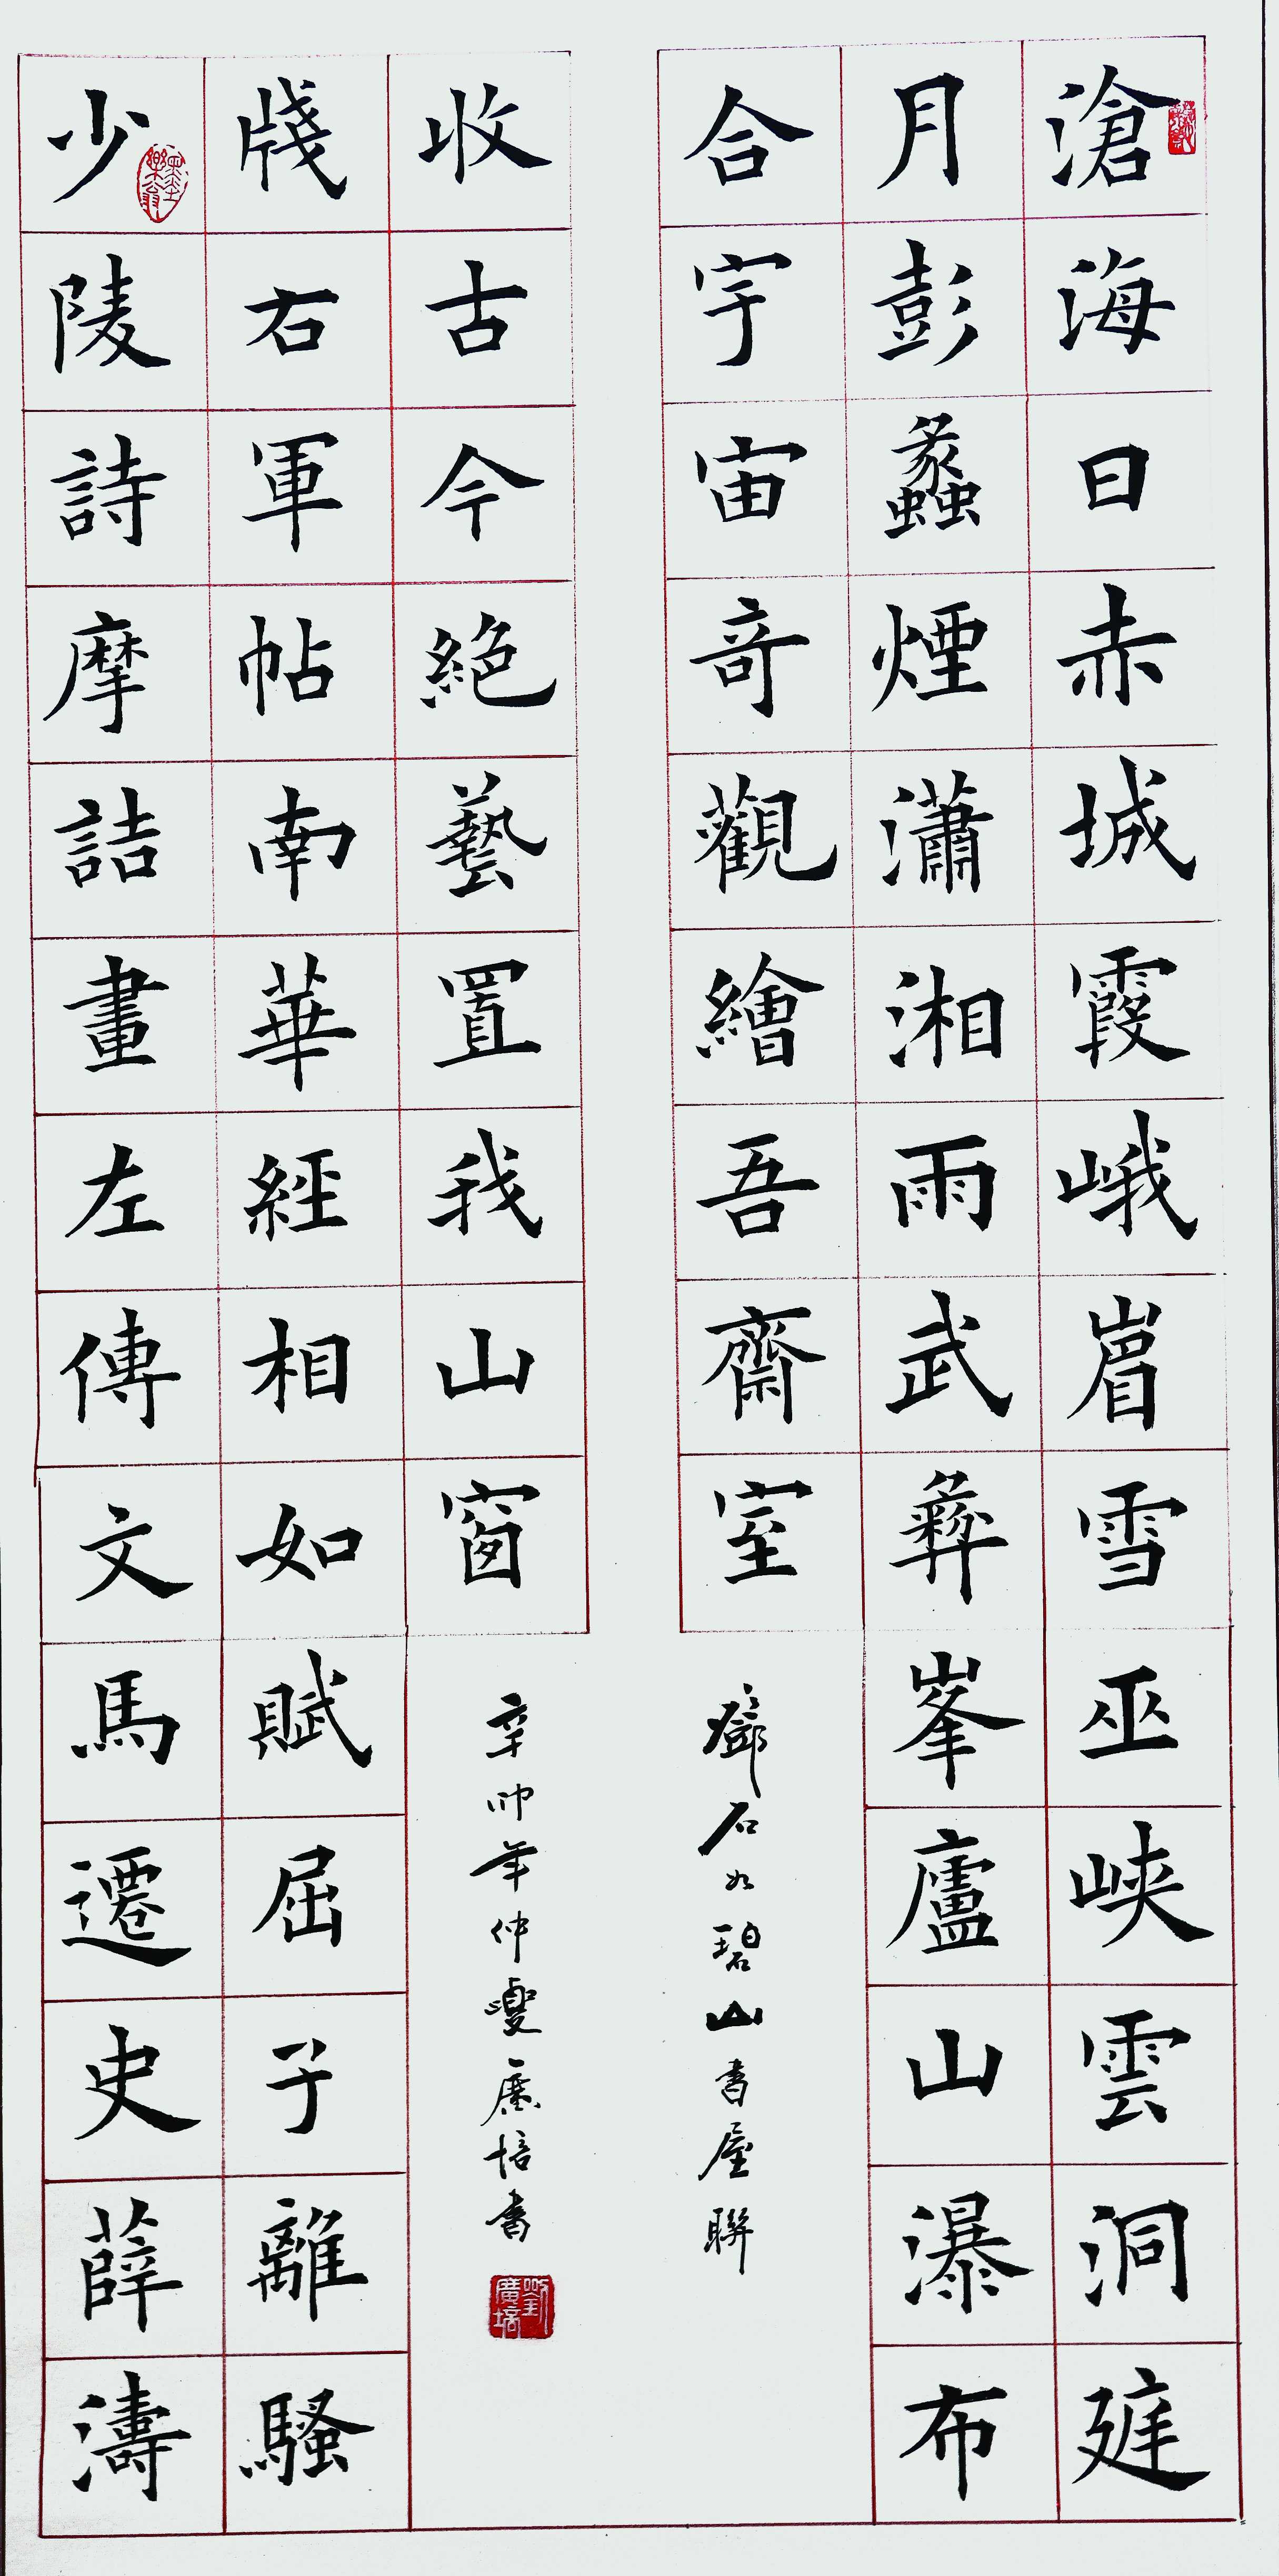 滄海日赤城霞峨嵋雪巫峽雲洞庭
月彭蠡煙瀟湘雨武彝峯廬山瀑布
合宇宙奇觀繪吾齋室
鄧石如碧山書屋聯
少陵詩摩詰畫左傳文馬遷史薛濤
牋右軍帖南華經相如賦屈子離騷
收古今絕藝置我山窗
辛卯年仲夏廣培書
劉廣培